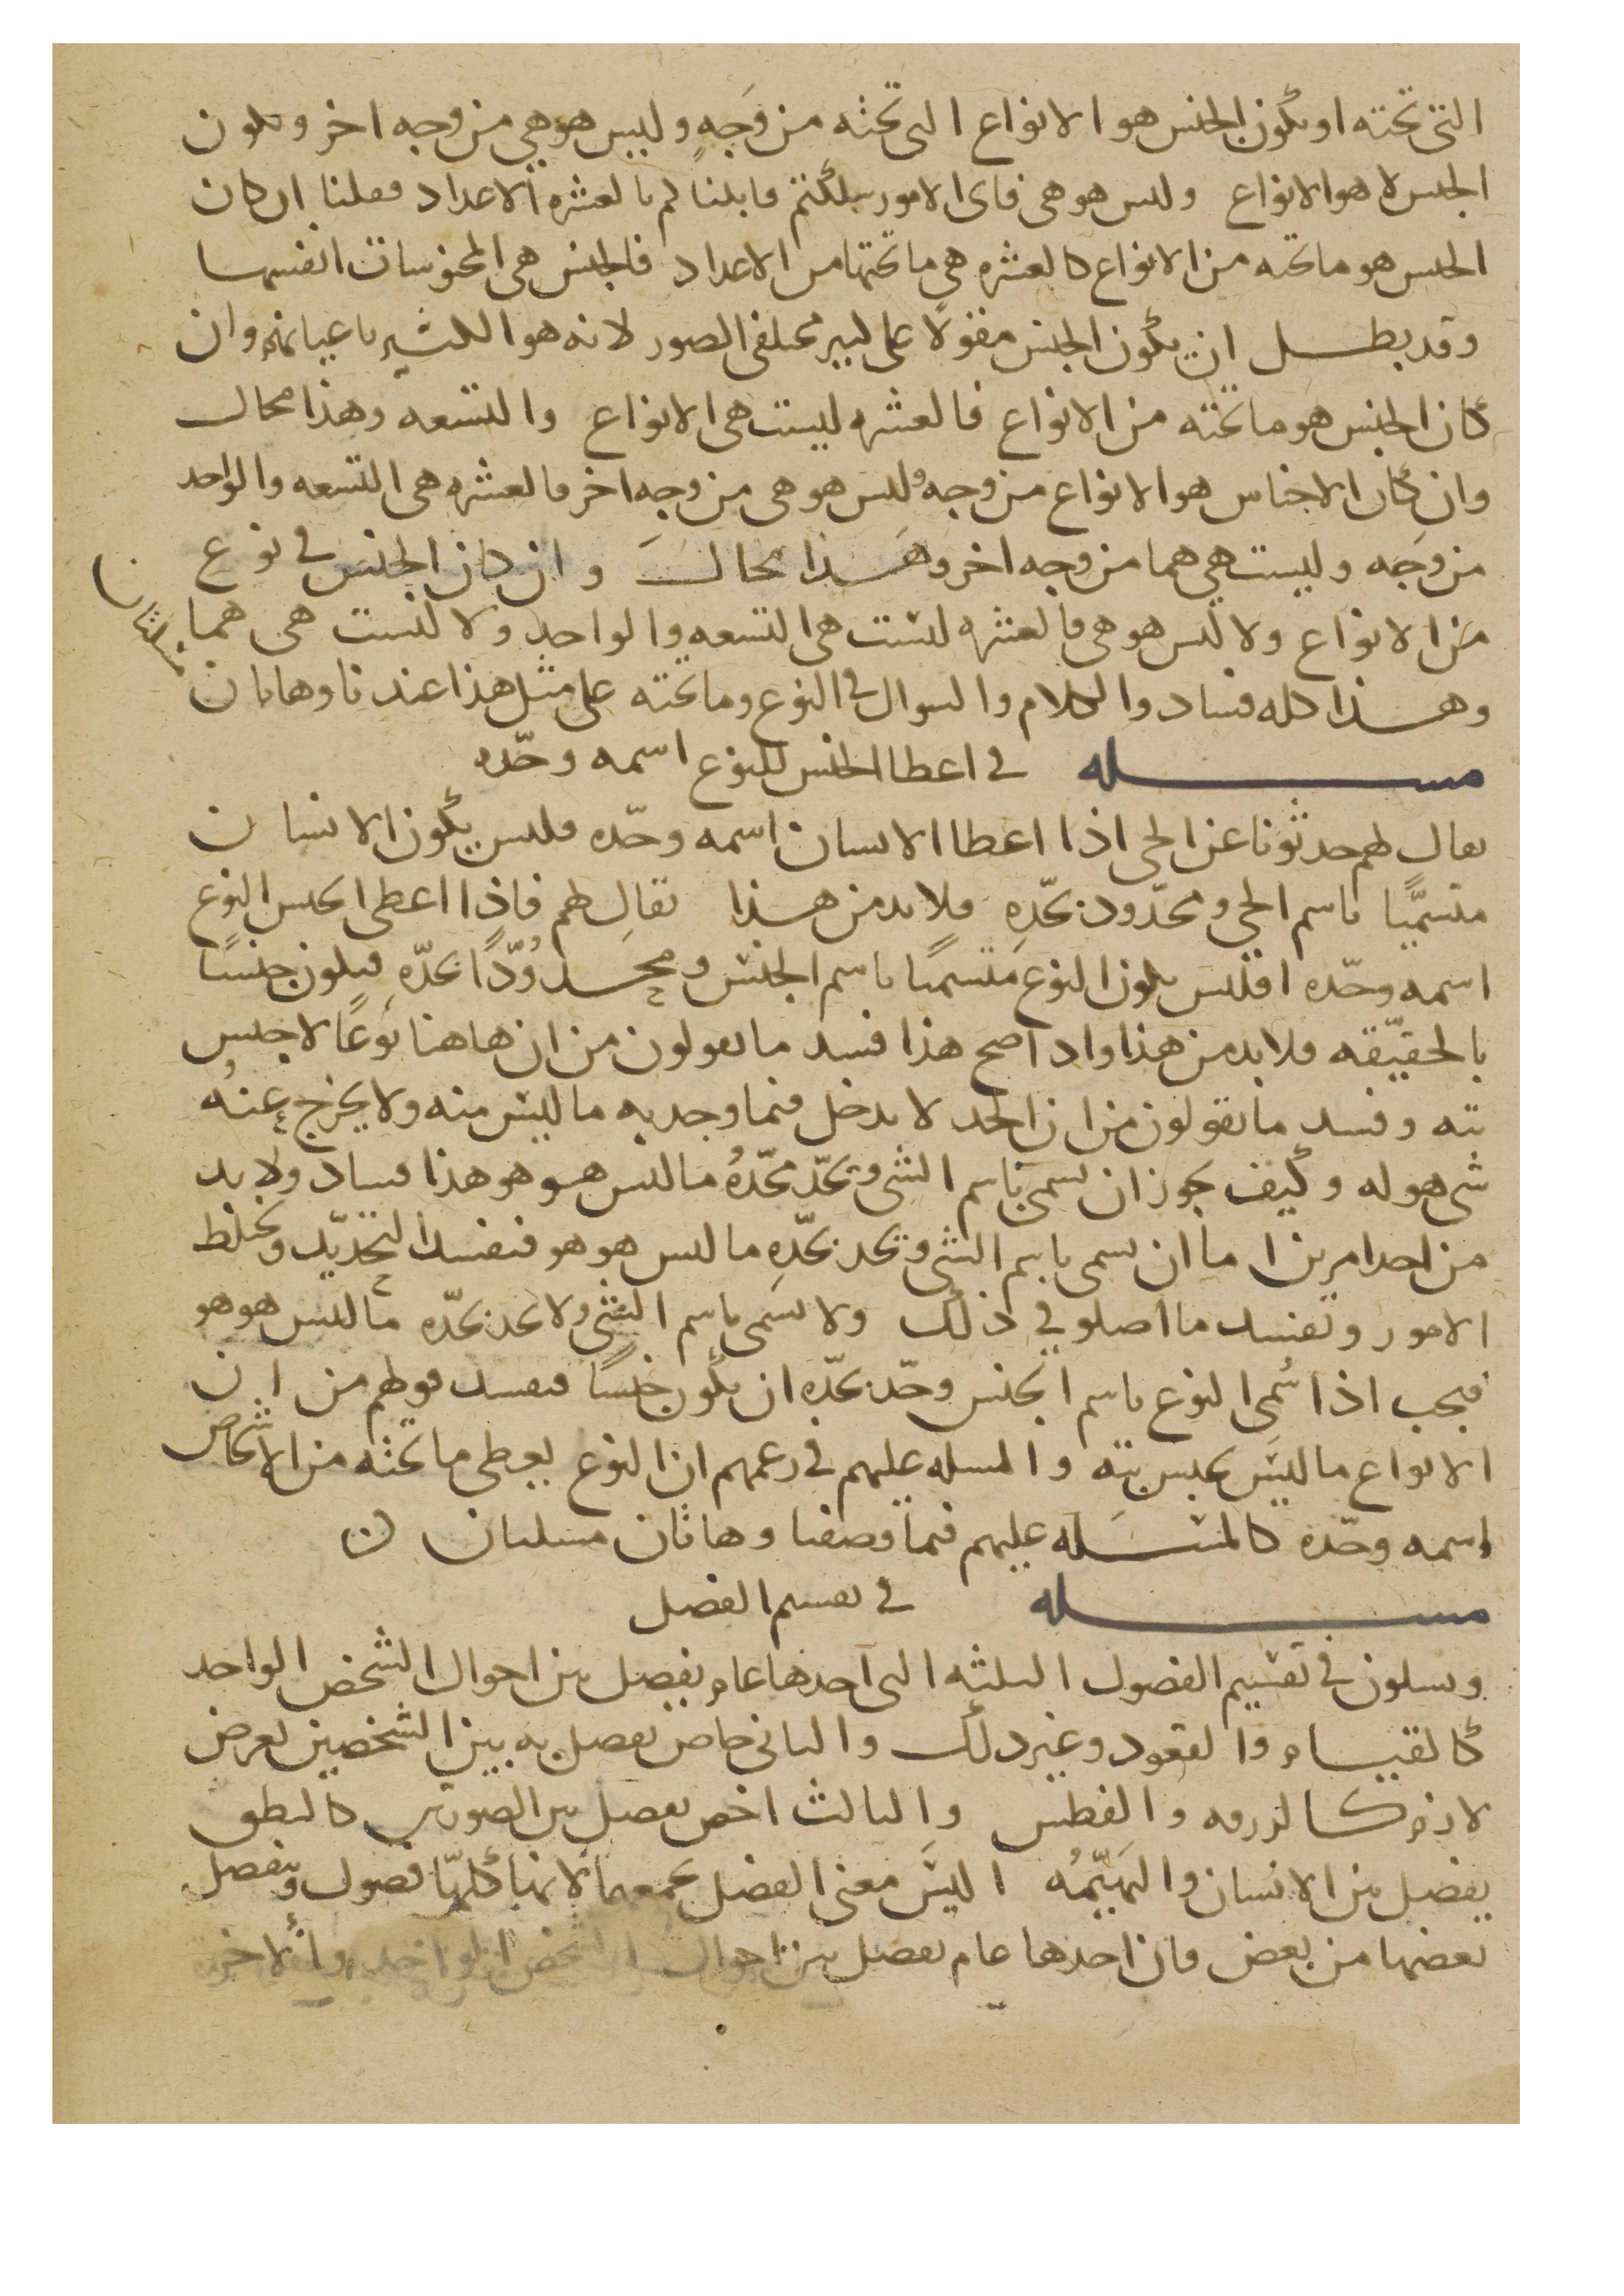 التي تحته او يكون الجنس هو الانواع التي تحته من وجهٍ وليس هو هي من وجه اخر ويكون
الجنس لا هو الانواع وليس هو هي فاي الامور سلكتم قابلناكم بالعشره الاعداد فقلنا ان كان
الجنس هو ما تحته من الانواع كالعشره هي ما تحتها من الاعداد فالجنس هي المحسوسات انفسها
وقد بطل ان يكون الجنس مقولًا على كثير مختلفي الصور لانه هو الكثير باعيانهم وان
كان الجنس هو ما تحته من الانواع فالعشره ليست هي الانواع والتسعه وهذا محال
وان كان الاجناس هو الانواع من وجه وليس هو هي من وجه اخر فالعشره هي التسعه والواحد
من وجه وليست هي هما من وجه اخر وهذا محال وان كان الجنس في نوع
من الانواع ولا ليس هو هي فالعشره ليست هي التسعه والواحد ولا ليست هي هما
وهذا كله فساد والكلام والسوال في النوع وما تحته على مثل هذا عندنا وهاتان
مسلتان
مسله في اعطا الجنس للنوع اسمه وحدّه
يقال لهم حدثونا عن الحي اذا اعطا الانسان اسمه وحدّه فليس يكون الانسان
متسميًّا باسم الحي ومحدّود بحدّهِ فلا بد من هذا يقال لهم فاذا اعطى الجنس النوع
اسمه وحدّه افليس يكون النوع متسميًا باسم الجنس ومحدودًّا بحدّهِ فيكون جنسًا
بالحقيّقه فلا بد من هذا واذا صح هذا فسد ما يقولون من ان هاهنا نوعًا لا جنس
بته وفسد ما يقولون من ان الحد لا يدخل فيما وجد به ما ليس منه ولا يخرج عنه
شي هو له وكيف يجوز ان يسمى باسم الشي ويحدّ بحدّهُ ما ليس هو هو هذا فساد ولا بد
من احد امرين اما ان يسمى باسم الشي ويحد بحدّهِ ما ليس هو هو فيفسد التحديّد ويخلط
الامور ويفسد ما اصلو في ذلك ولا يسمى باسم الشي ولا يحد بحدّه ما ليس هو هو
فيجب اذا سُمي النوع باسم الجنس وحدّ بحدّهِ ان يكون جنسًا فيفسد قولهم من ان
الانواع ما ليس بجنس بته والمسله عليهم في زعمهم ان النوع يعطي ما تحته من الاشخاص
اسمه وحدّه كالمسله عليهم فيما وصفنا وهاتان مسلتان
مسله في تقسيم الفصل
ويسلون في تقسيم الفصول الثلثه التي احدها عام يفصل بين احوال الشخص الواحد
كالقيام والقعود وغير ذلك والثاني خاص يفصل به بين الشخصين بعرض
لازم كالزرقه والفطس والثالث اخص يفصل بين الصورتين كالنطق
يفصل بين الانسان والبهيّمُه اليس معنى الفصل يجمعها لانها كلهّا فصول ويفصل
بعضها من بعض فان احدها عام يفصل بين احوال الشخص الواحد والاخر